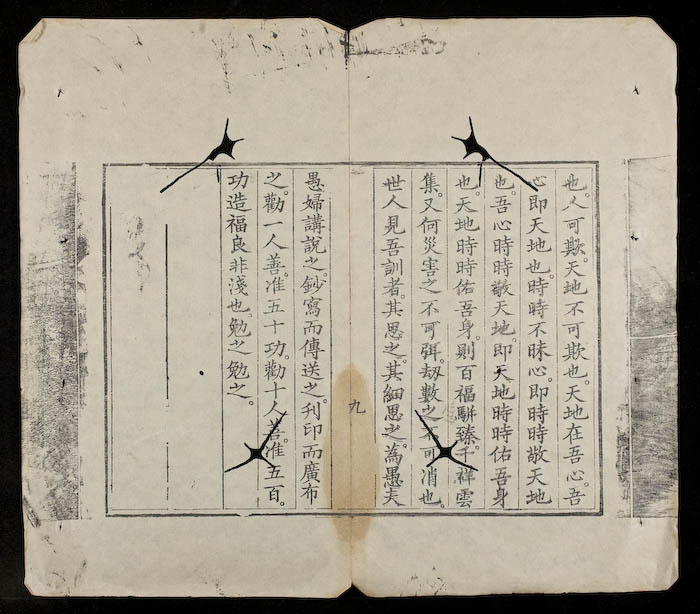 也。人可欺。天地不可欺也。天地在吾心。吾
心即天地也。時時不昧心。即時時敬天地
也。吾心時時敬天地。即天地時時佑吾身
也。天地時時佑吾身。則百福駢臻。千祥雲
集。又何災害之不可弭。刼數之不可消也。
世人見吾訓者。其思之。其細思之。為愚夫
九
愚婦講說之。鈔寫而傳送之。刋印而廣布
之。勸一人善。准五十功。勸十人善。准五百
功。造福良非淺也。勉之勉之。